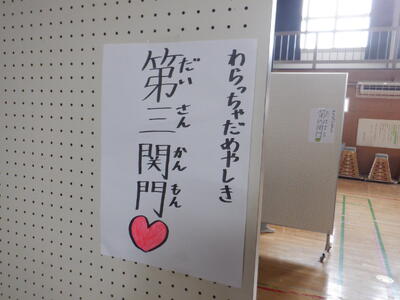 わらっちゃだめやしき
第三関門
だいさんかんもん